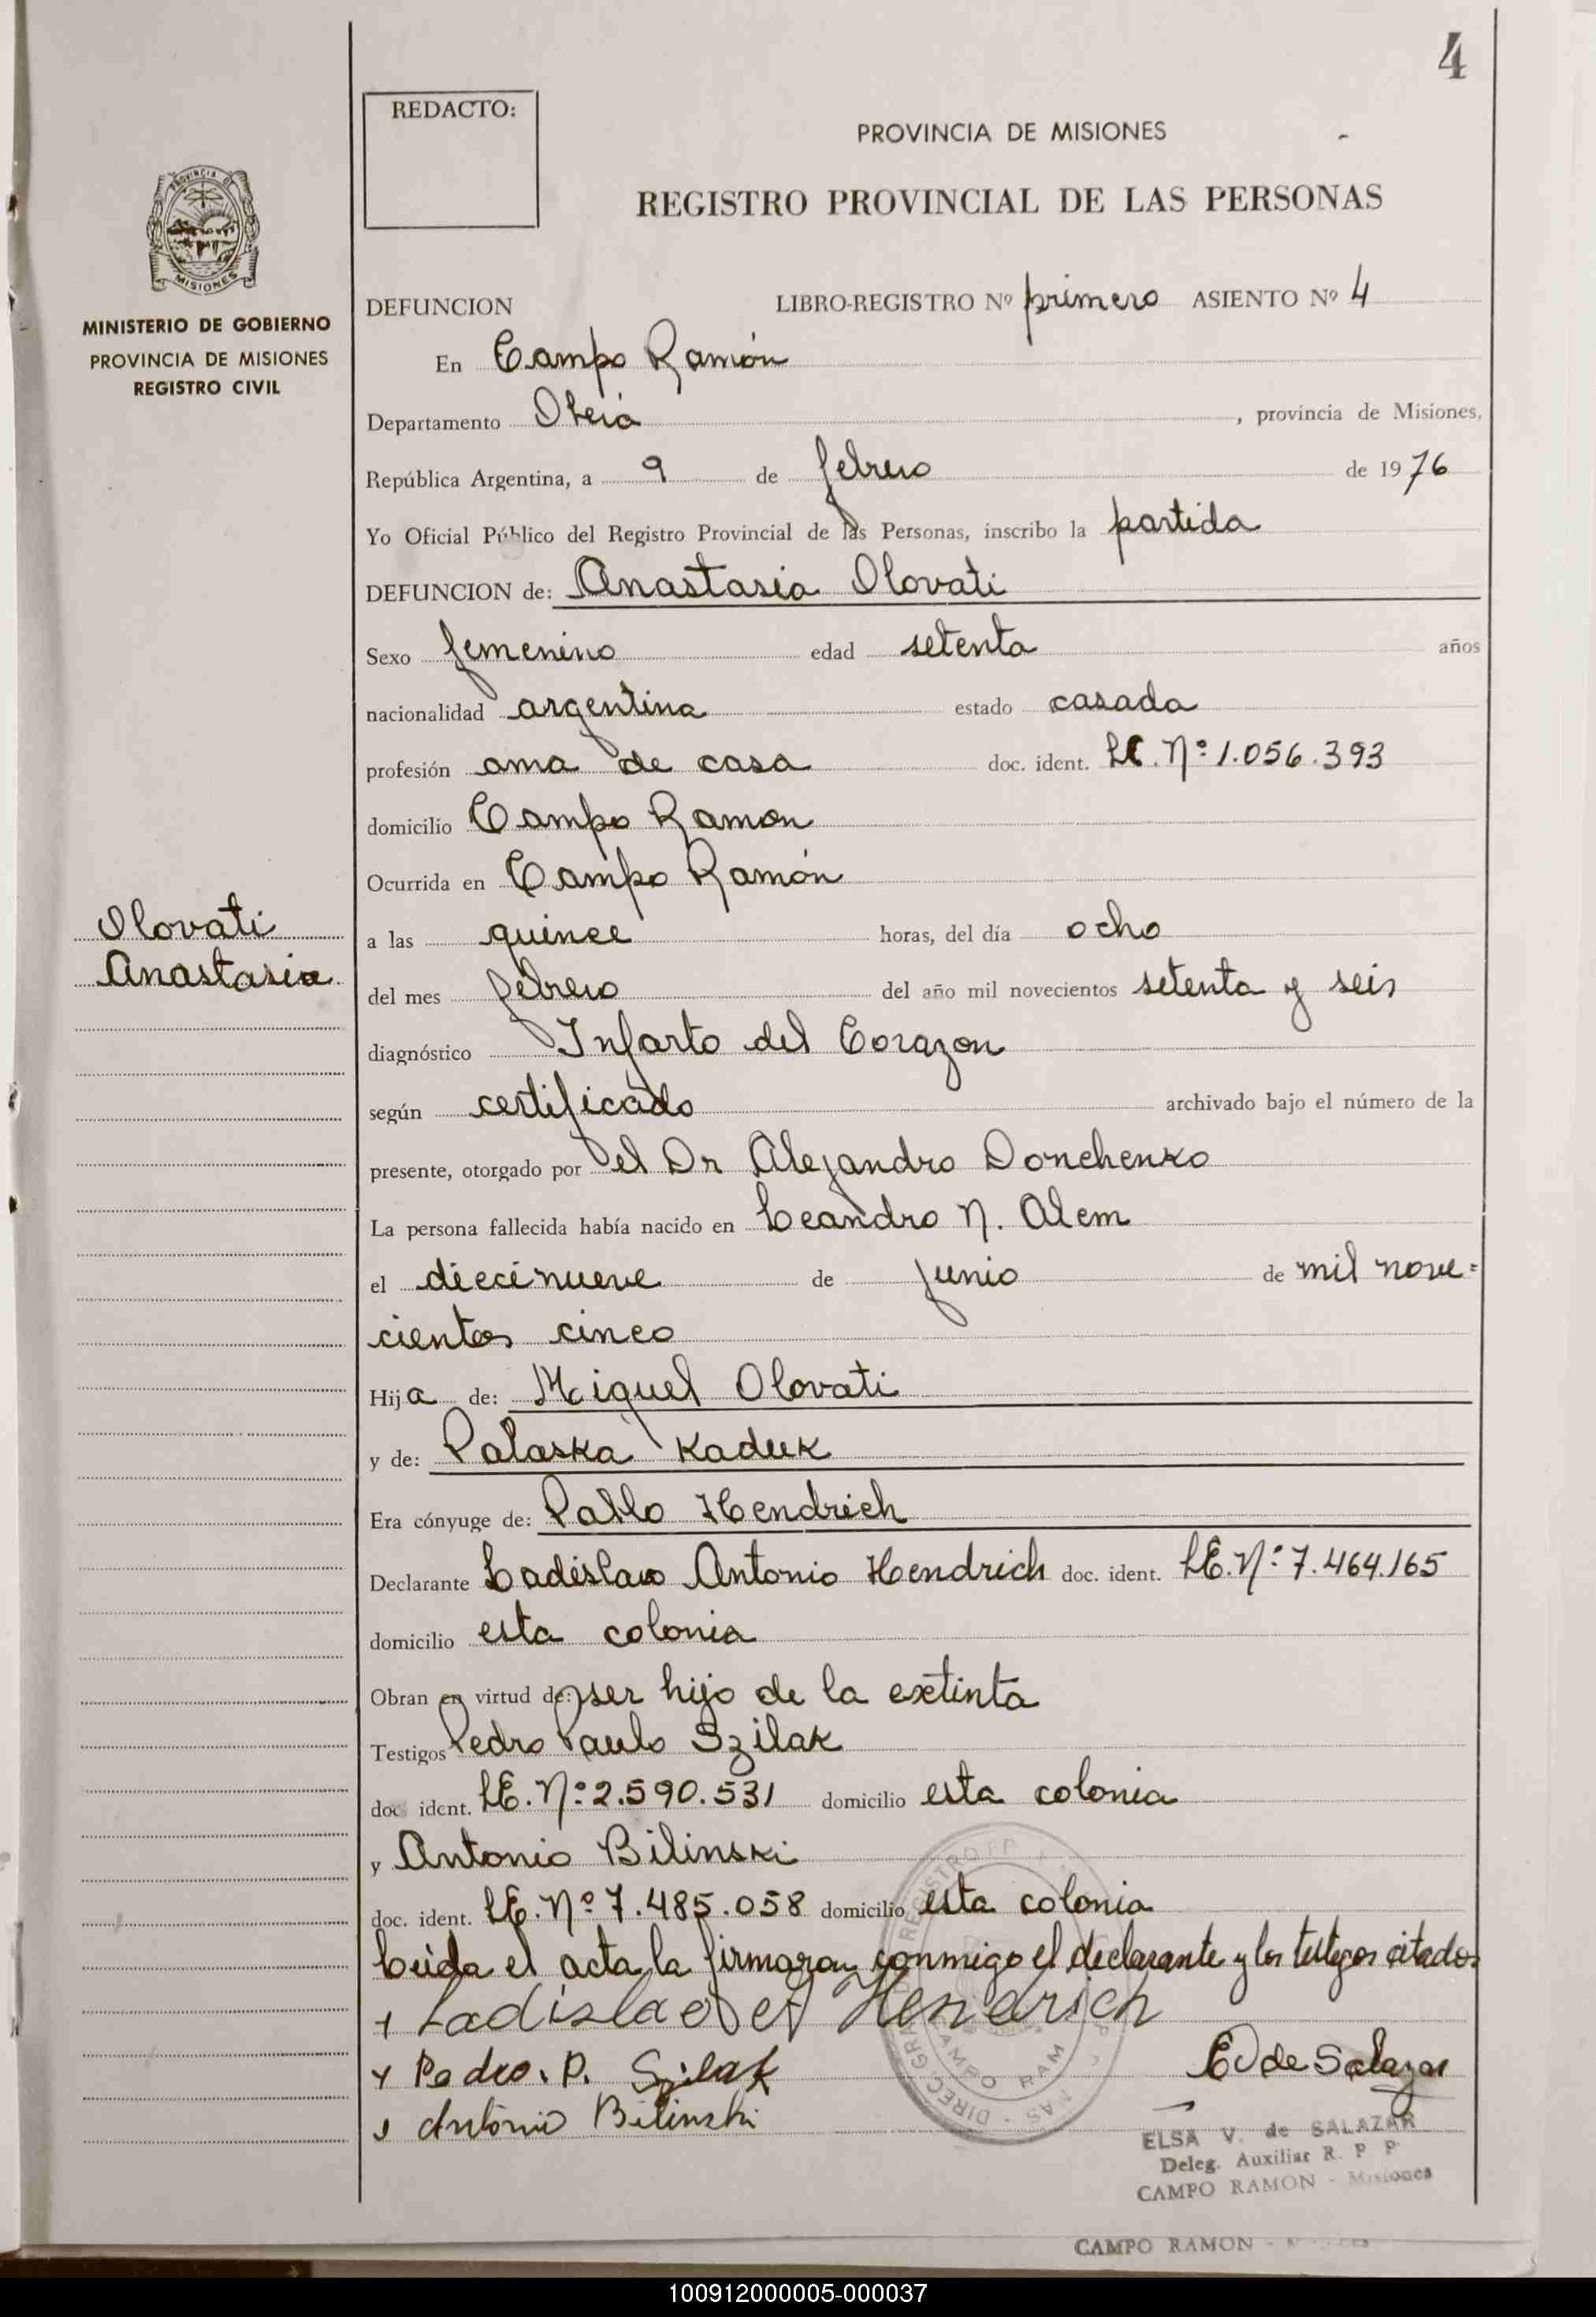 4
REDACTO:
PROVINCIA DE MISIONES
REGISTRO PROVINCIAL DE LAS PERSONAS
PROVINCIA DE
MISIONES
MINISTERIO DE GOBIERNO
PROVINCIA DE MISIONES
REGISTRO CIVIL
DEFUNCION LIBRO-REGISTRO Nº primero ASIENTO Nº 4
En Campo Ramón
Departamento Oberá, provincia de Misiones,
República Argentina, a 9 de febrero de 1976
Yo Oficial Público del Registro Provincial de las Personas, inscribo la partida
DEFUNCION de: Anastasia Olovati
Sexo femenino edad setenta años
nacionalidad argentina estado casada
profesión ama de casa doc. ident. LC. Nº 1.056.393
domicilio Campo Ramon
Ocurrida en Campo Ramón
Olovati
Anastasia
a las quince horas, del día ocho
del mes febrero del año mil novecientos setenta y seis
diagnóstico Infarto del Corazon
según certificado archivado bajo el número de la
presente, otorgado por el Dr Alejandro Donchenko
La persona fallecida había nacido en Leandro N. Alem
el diecinueve de junio de mil nove=
cientos cinco
Hija de: Miguel Olovati
y de: Palaska Kaduk
Era cónyuge de: Pablo Hendrich
Declarante Ladislao Antonio Hendrich doc. ident. LE. Nº 7.464.165
domicilio esta colonia
Obran en virtud de: ser hijo de la extinta
Testigos Pedro Paulo Szilak
doc. ident. LE. Nº 2.590.531 domicilio esta colonia
y Antonio Bilinski
doc. ident. LE. Nº 7.485.058 domicilio esta colonia
Leida el acta la firmaron conmigo el declarante y los testigos citados
Ladislao A Hendrich
Pedro. P. Szilak
Antonio Bilinski
E V de Salazar
ELSA V. de SALAZAR
Deleg. Auxiliar R. P P
CAMPO RAMON - Misiones
CAMPO RAMON -
100912000005-000037